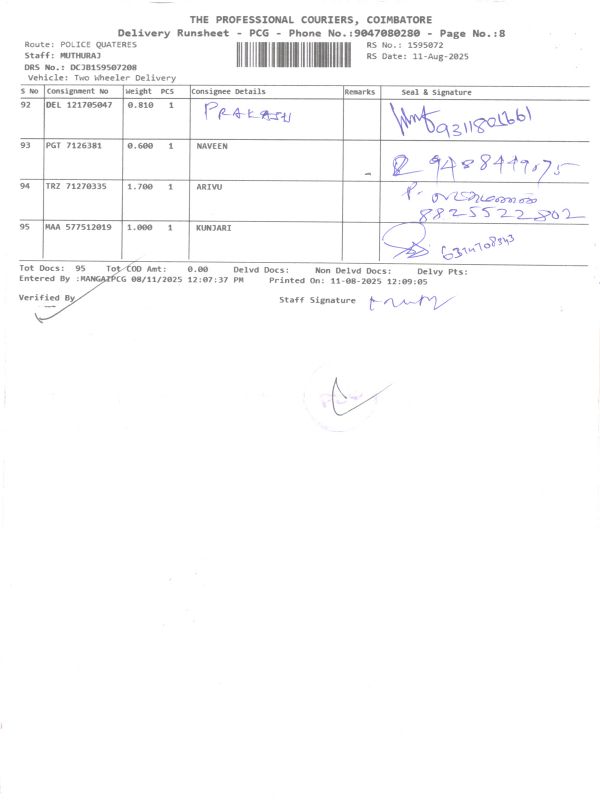 THE PROFESSIONAL COURIERS, COIMBATORE
Delivery Runsheet - PCG - Phone No.:9047080280 - Page No.:8
Route: POLICE QUATERES RS No.: 1595072
Staff: MUTHURAJ RS Date: 11-Aug-2025
DRS No.: DCJB159507208
Vehicle: Two Wheeler Delivery
S No Consignment No Weight PCS Consignee Details Remarks Seal & Signature
92 DEL 121705047 0.810 1 PRAKASH
93 PGT 7126381 0.600 1 NAVEEN
94 TRZ 71270335 1.700 1 ARIVU
8825522802
95 MAA 577512019 1.000 1 KUNJARI
Tot Docs: 95 Tot COD Amt: 0.00 Delvd Docs: Non Delvd Docs: Delvy Pts:
Entered By :MANGAIPCG 08/11/2025 12:07:37 PM Printed On: 11-08-2025 12:09:05
Verified By Staff Signature